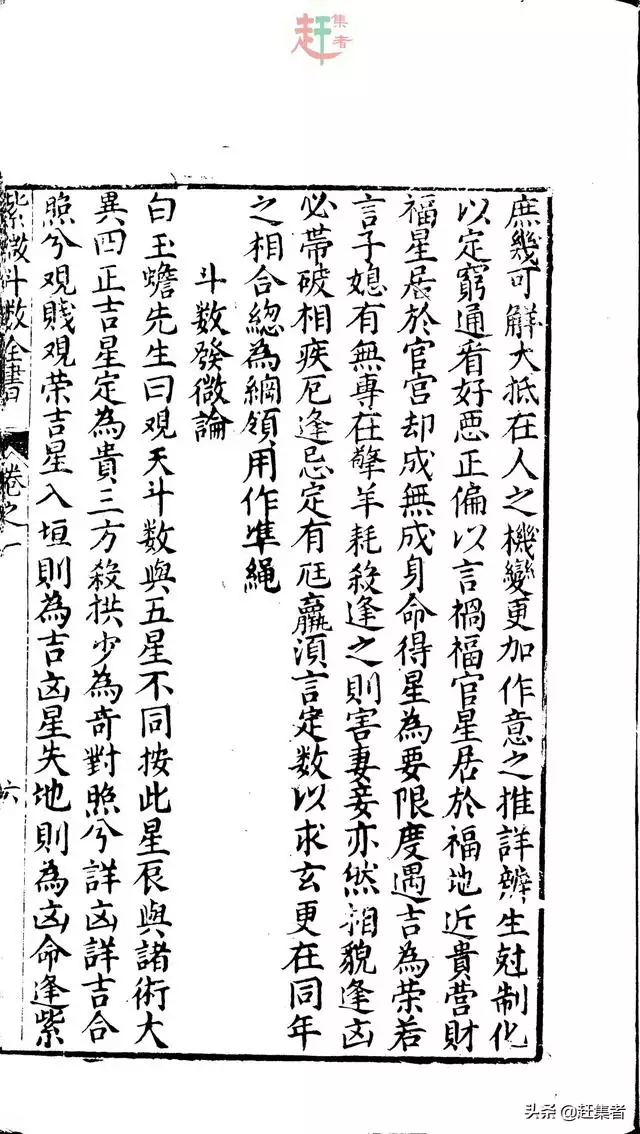 赶集者
庶幾可觧大抵在人之機變更加作意之推詳辨生尅制化
以定窮通看好惡正偏以言禍福官星居於福地近貴营財
福星居於官宫却成無成身命得星為要限度遇吉為荣若
言子媳有無專在擎羊耗殺逢之則害妻妾亦然相貌逢凶
必帶破相疾厄逢忌定有尫羸湏言定数以求玄更在同年
之相合緫為綱領用作準繩
斗数發微論
白玉蟾先生曰观天斗数與五星不同按此星辰與諸術大
異四正吉星定為貴三方殺拱少為奇對照兮詳凶詳吉合
照兮观賤观荣吉星入垣則為吉凶星失地則為凶命逢紫
紫微斗数全書 卷之一 六
头条 @赶集者